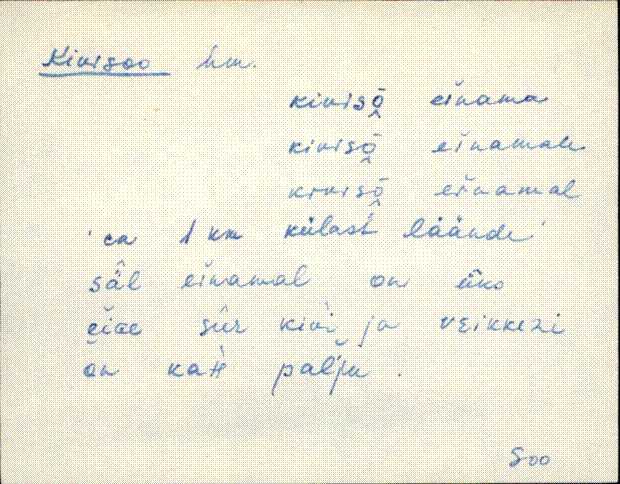 Kivisoo hm.
kivisō̭ eìnama
kivisō̭ eìnamalᴇ
kivisō̭ eìnamal
'ca 1 km külast läände'
sǟl eìnamal on üks
sūr kivi ja veikkezi
on kaH palju.
Soo